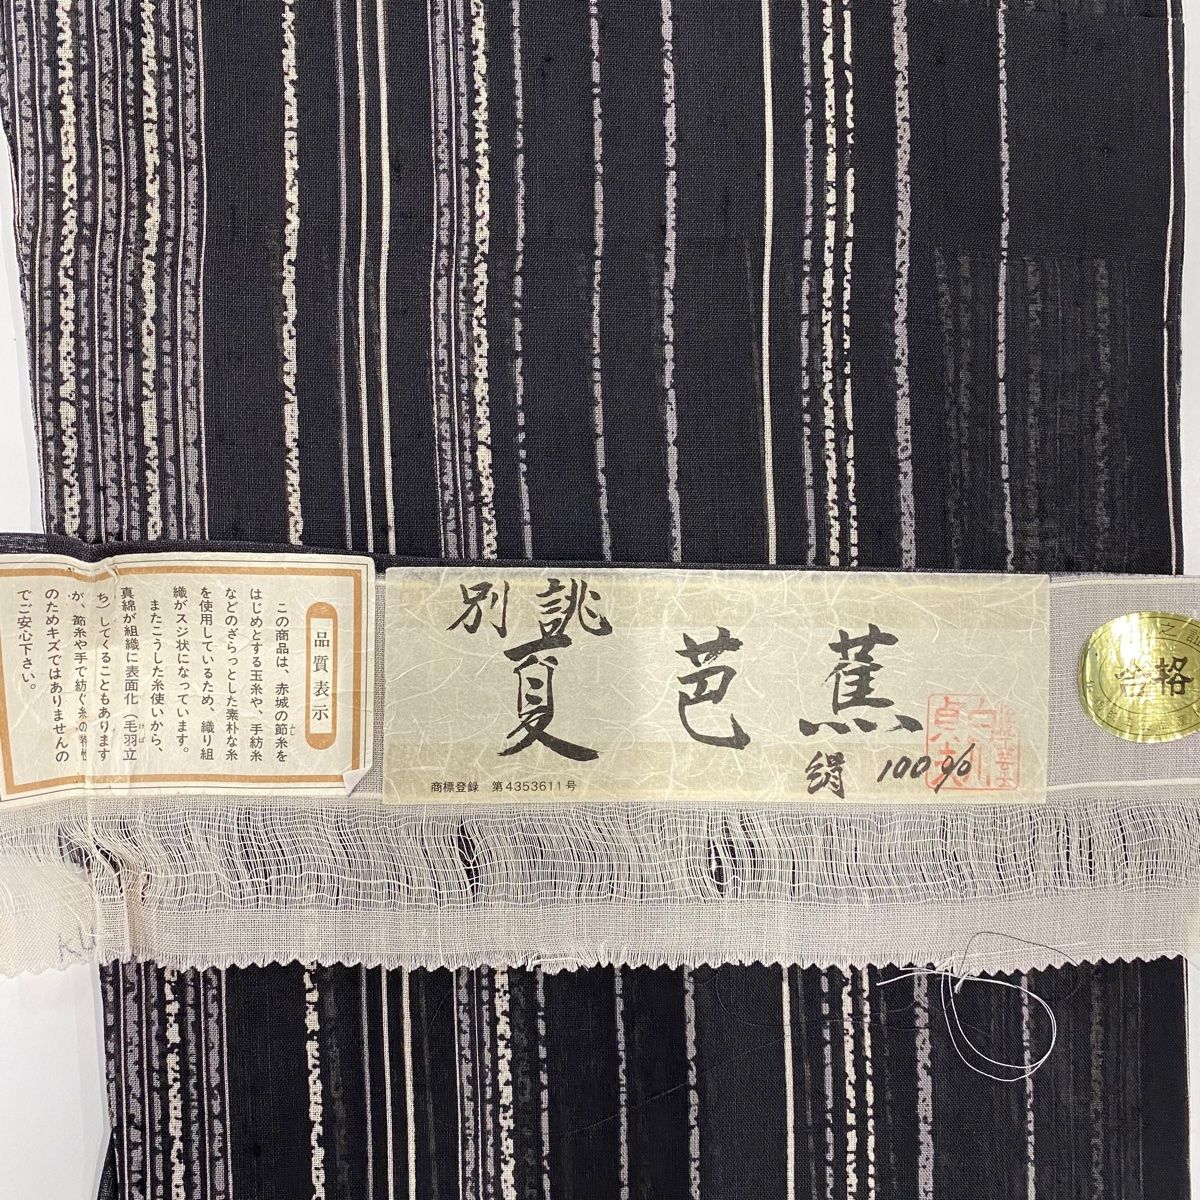 品質表示
この商品は、赤城の節糸を
はじめとする玉糸や、手紡糸
などのざらっとした素朴な糸
を使用しているため、織り組
織がスジ状になっています。
またこうした糸使いから、
真綿が組織に表面化（毛羽立
ち）してくることもあります
が、節糸や手で紡ぐ糸の特性
のためキズではありませんの
でご安心下さい。
別誂
夏芭蕉
絹 100%
商標登録 第4353611号
合格